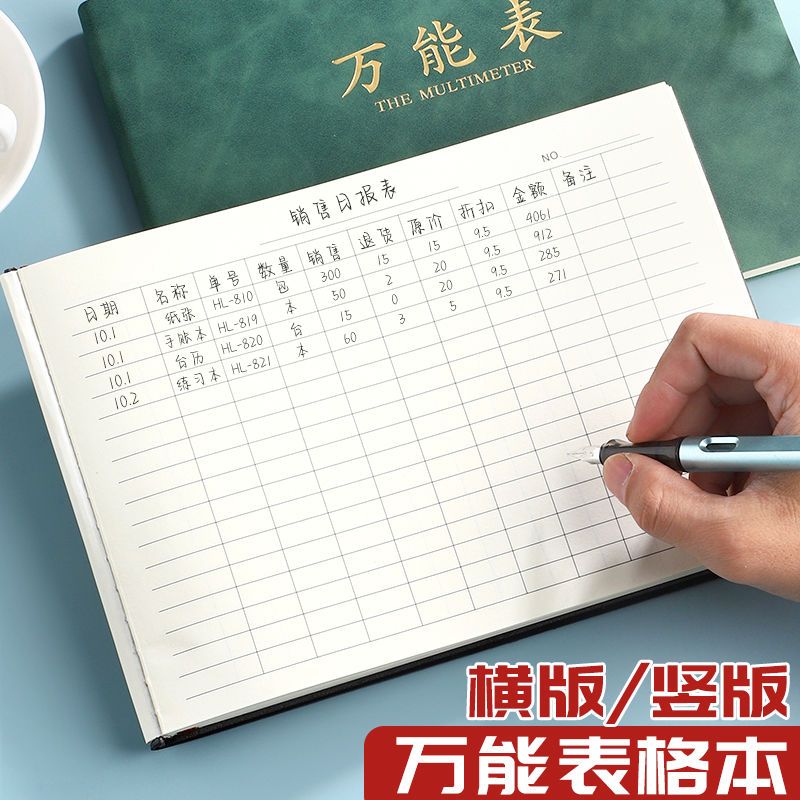 万能表
THE MULTIMETER
NO
销售日报表
日期 名称 单号 数量 销售 退货 原价 折扣 金额 备注
10.1 纸张 HL-810 包 300 15 15 9.5 4061
10.1 手账本 HL-819 本 50 2 20 9.5 912
10.1 台历 HL-820 台 15 0 20 9.5 285
10.2 练习本 HL-821 本 60 3 5 9.5 271
横版/竖版
万能表格本